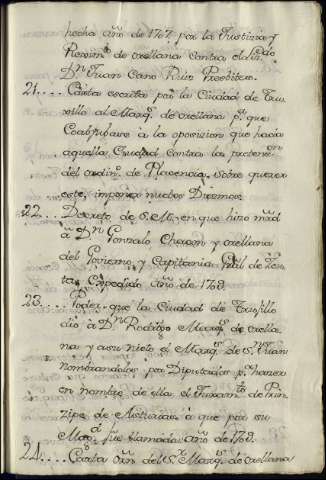 hecha año de 1767 por la Justicia y
Regim.to de orellana contra el
D.n Juan Cano Ruiz Presbitero.
21.... Carta escrita por la Ciudad de Tru-
xillo al Marq.s de orellana p.a que
Coadjubave a la oposicion que hacia
aquella Ciudad contra la
del ordin.o de Placencia, sobre querer
este, imponer nuebos Diezmos.
22.... Decreto de S. M. en que hizo mrd
a D.n Gonzalo Chacon y orellana
del Govierno y Capitania Gral de
año de 1709.
23.... Poder que la Ciudad de Trujillo
dio à D.n Rodrigo Marq.s de orella-
na y a su nieto el Marq.s de S.n Juan
nombrandolos por Diputados p.a hazer
en nombre de ella el Juram.to de Prin-
zipe de Asturias à que por su
Mag.d fue llamada año de 1709.
24.... Carta del S.r Marq.s de orellana